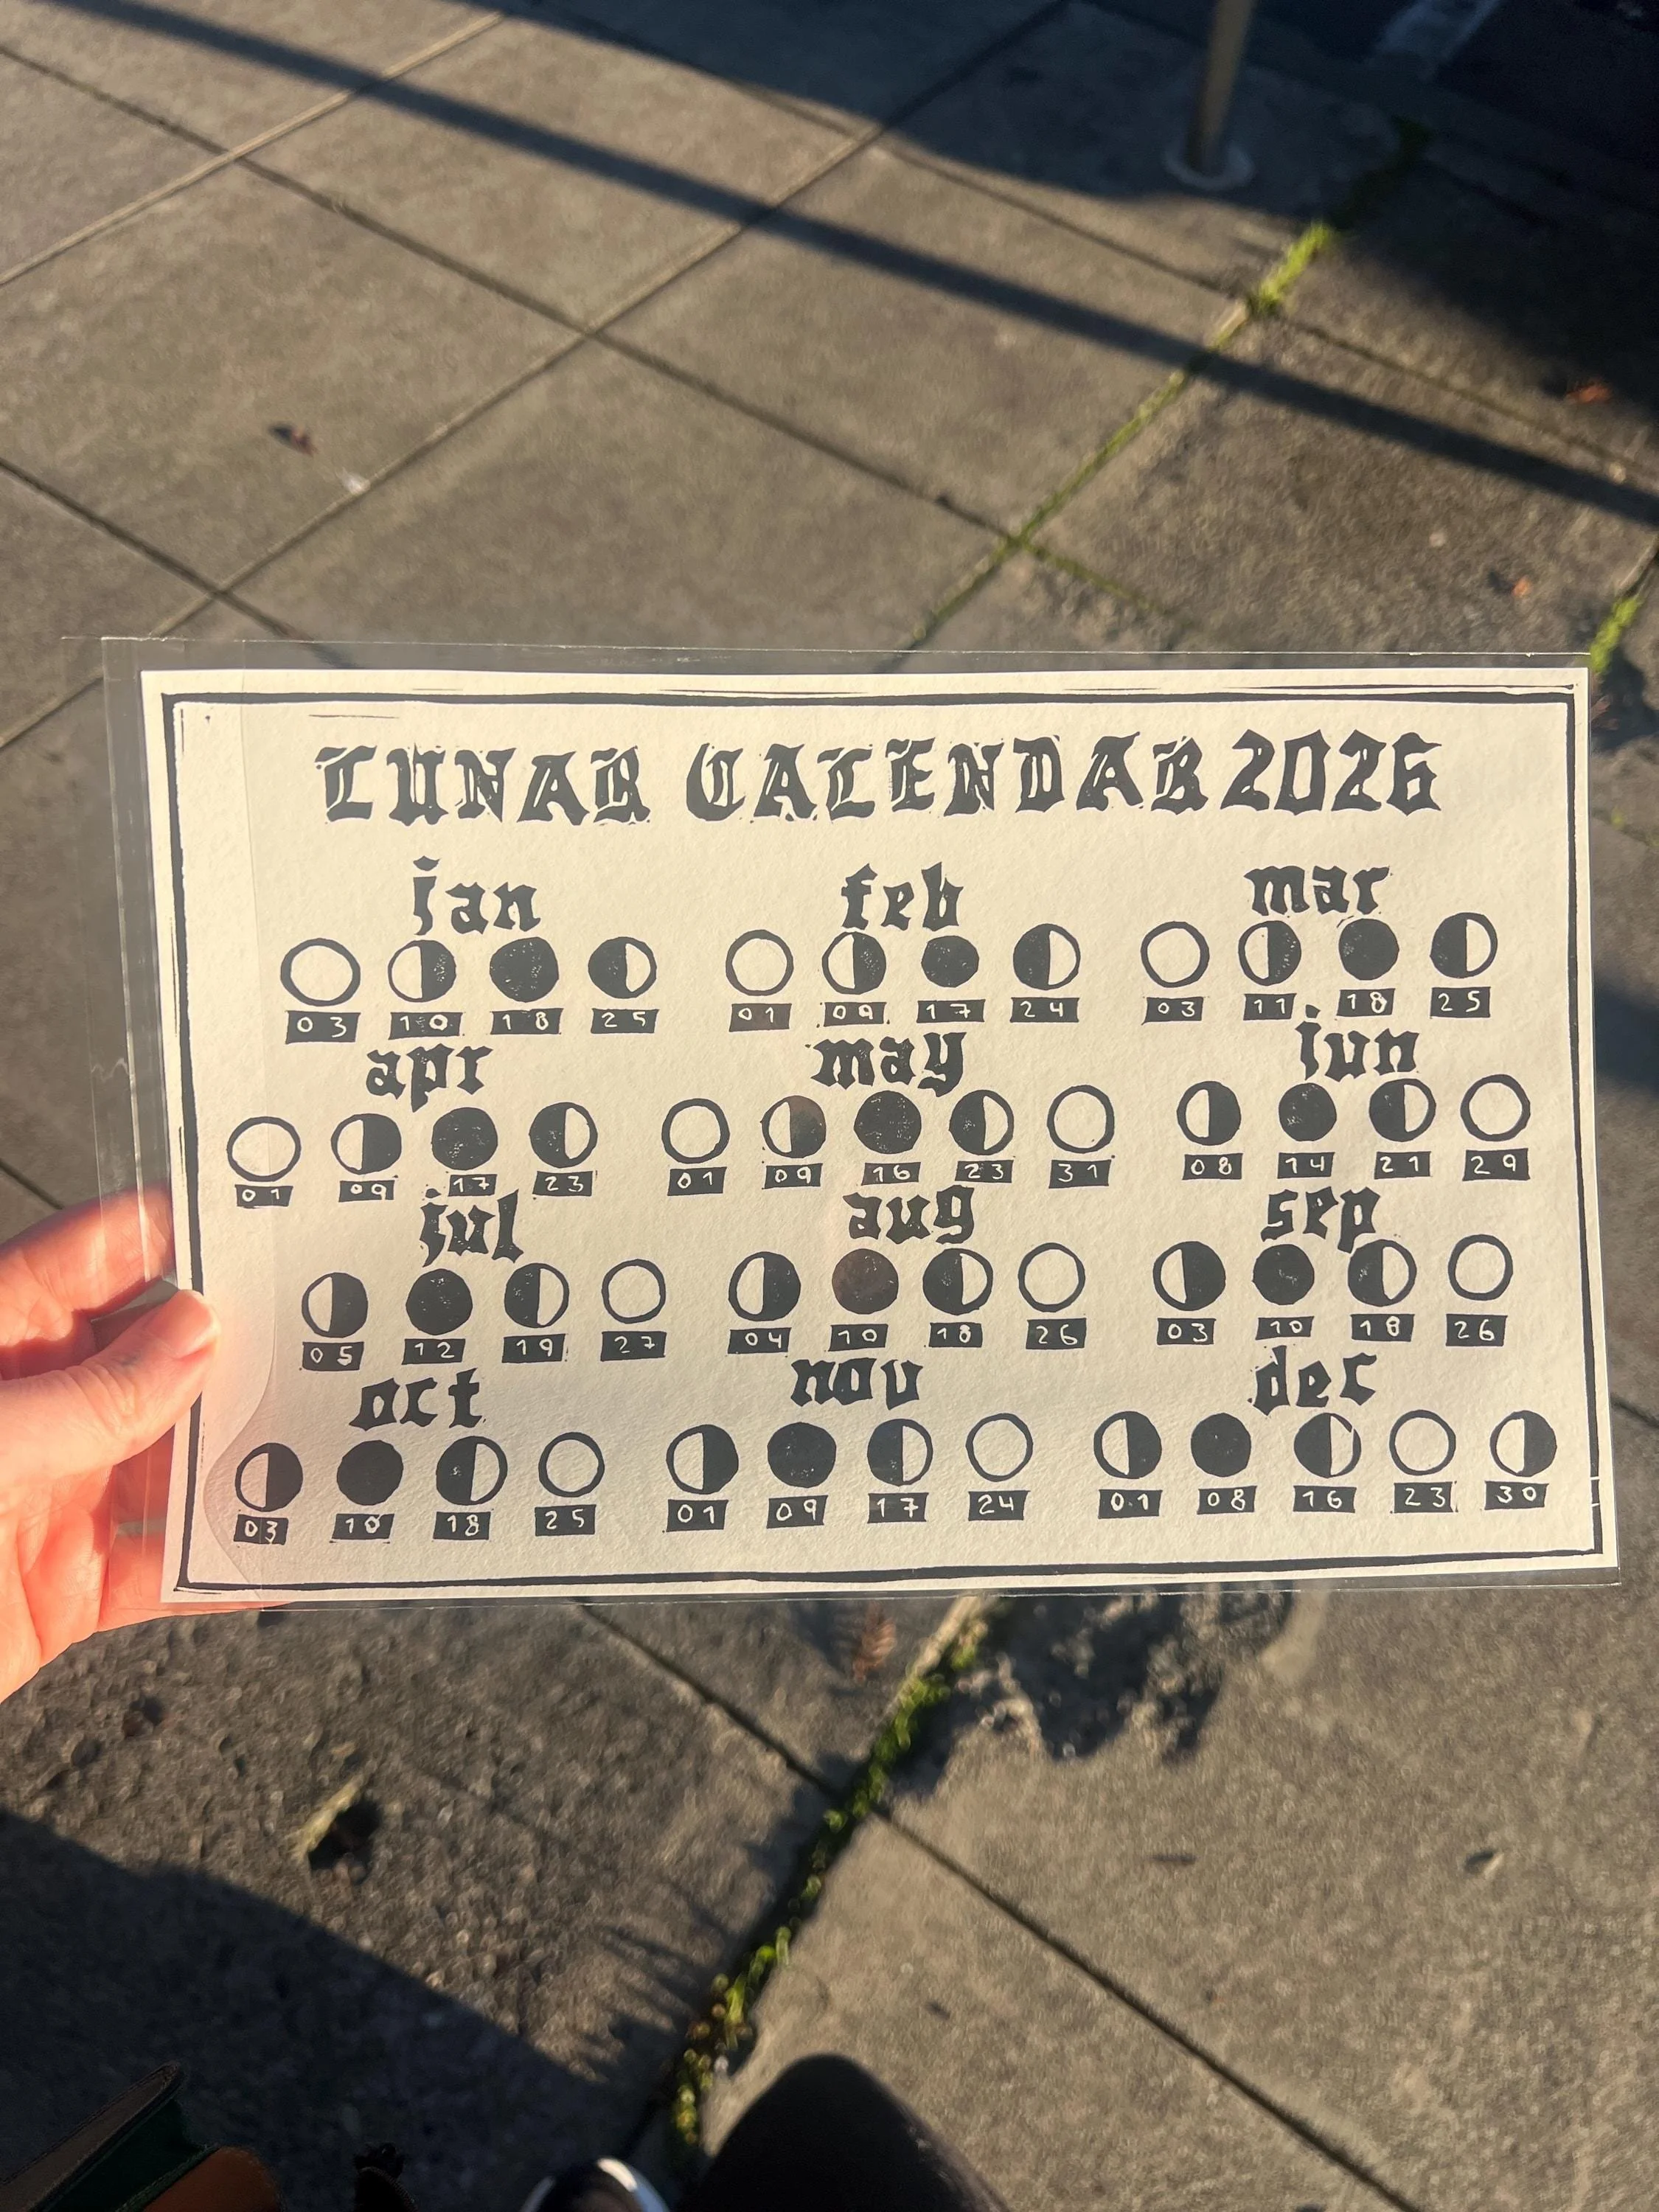 LUNAR CALENDAR 2026
jan feb mar
03 10 18 25 01 09 17 24 03 11 18 25
apr may jun
01 09 17 23 01 09 16 23 31 08 14 21 29
jul aug sep
05 12 19 27 04 10 18 26 03 10 18 26
oct nov dec
03 10 18 25 01 09 17 24 01 08 16 23 30